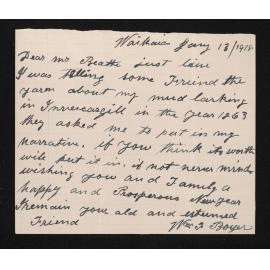 Waikaia Jany 13/1918
Dear Mr Beattie just
I was telling some Friend the
yarn about my mud larking
in Invercargill in the year 1863
they asked me to put in my
narrative, if you think its worth
will put it in, if not never mind
wishing you and Family a
happy and Prosperous New Year
I remain your old and esteemed
Friend Wm. Boyer